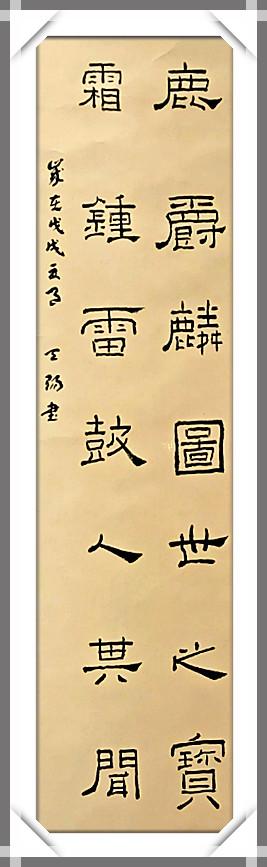 鹿爵麟圖世之寶
霜鍾雷鼓人共聞
歲在戊戌 書